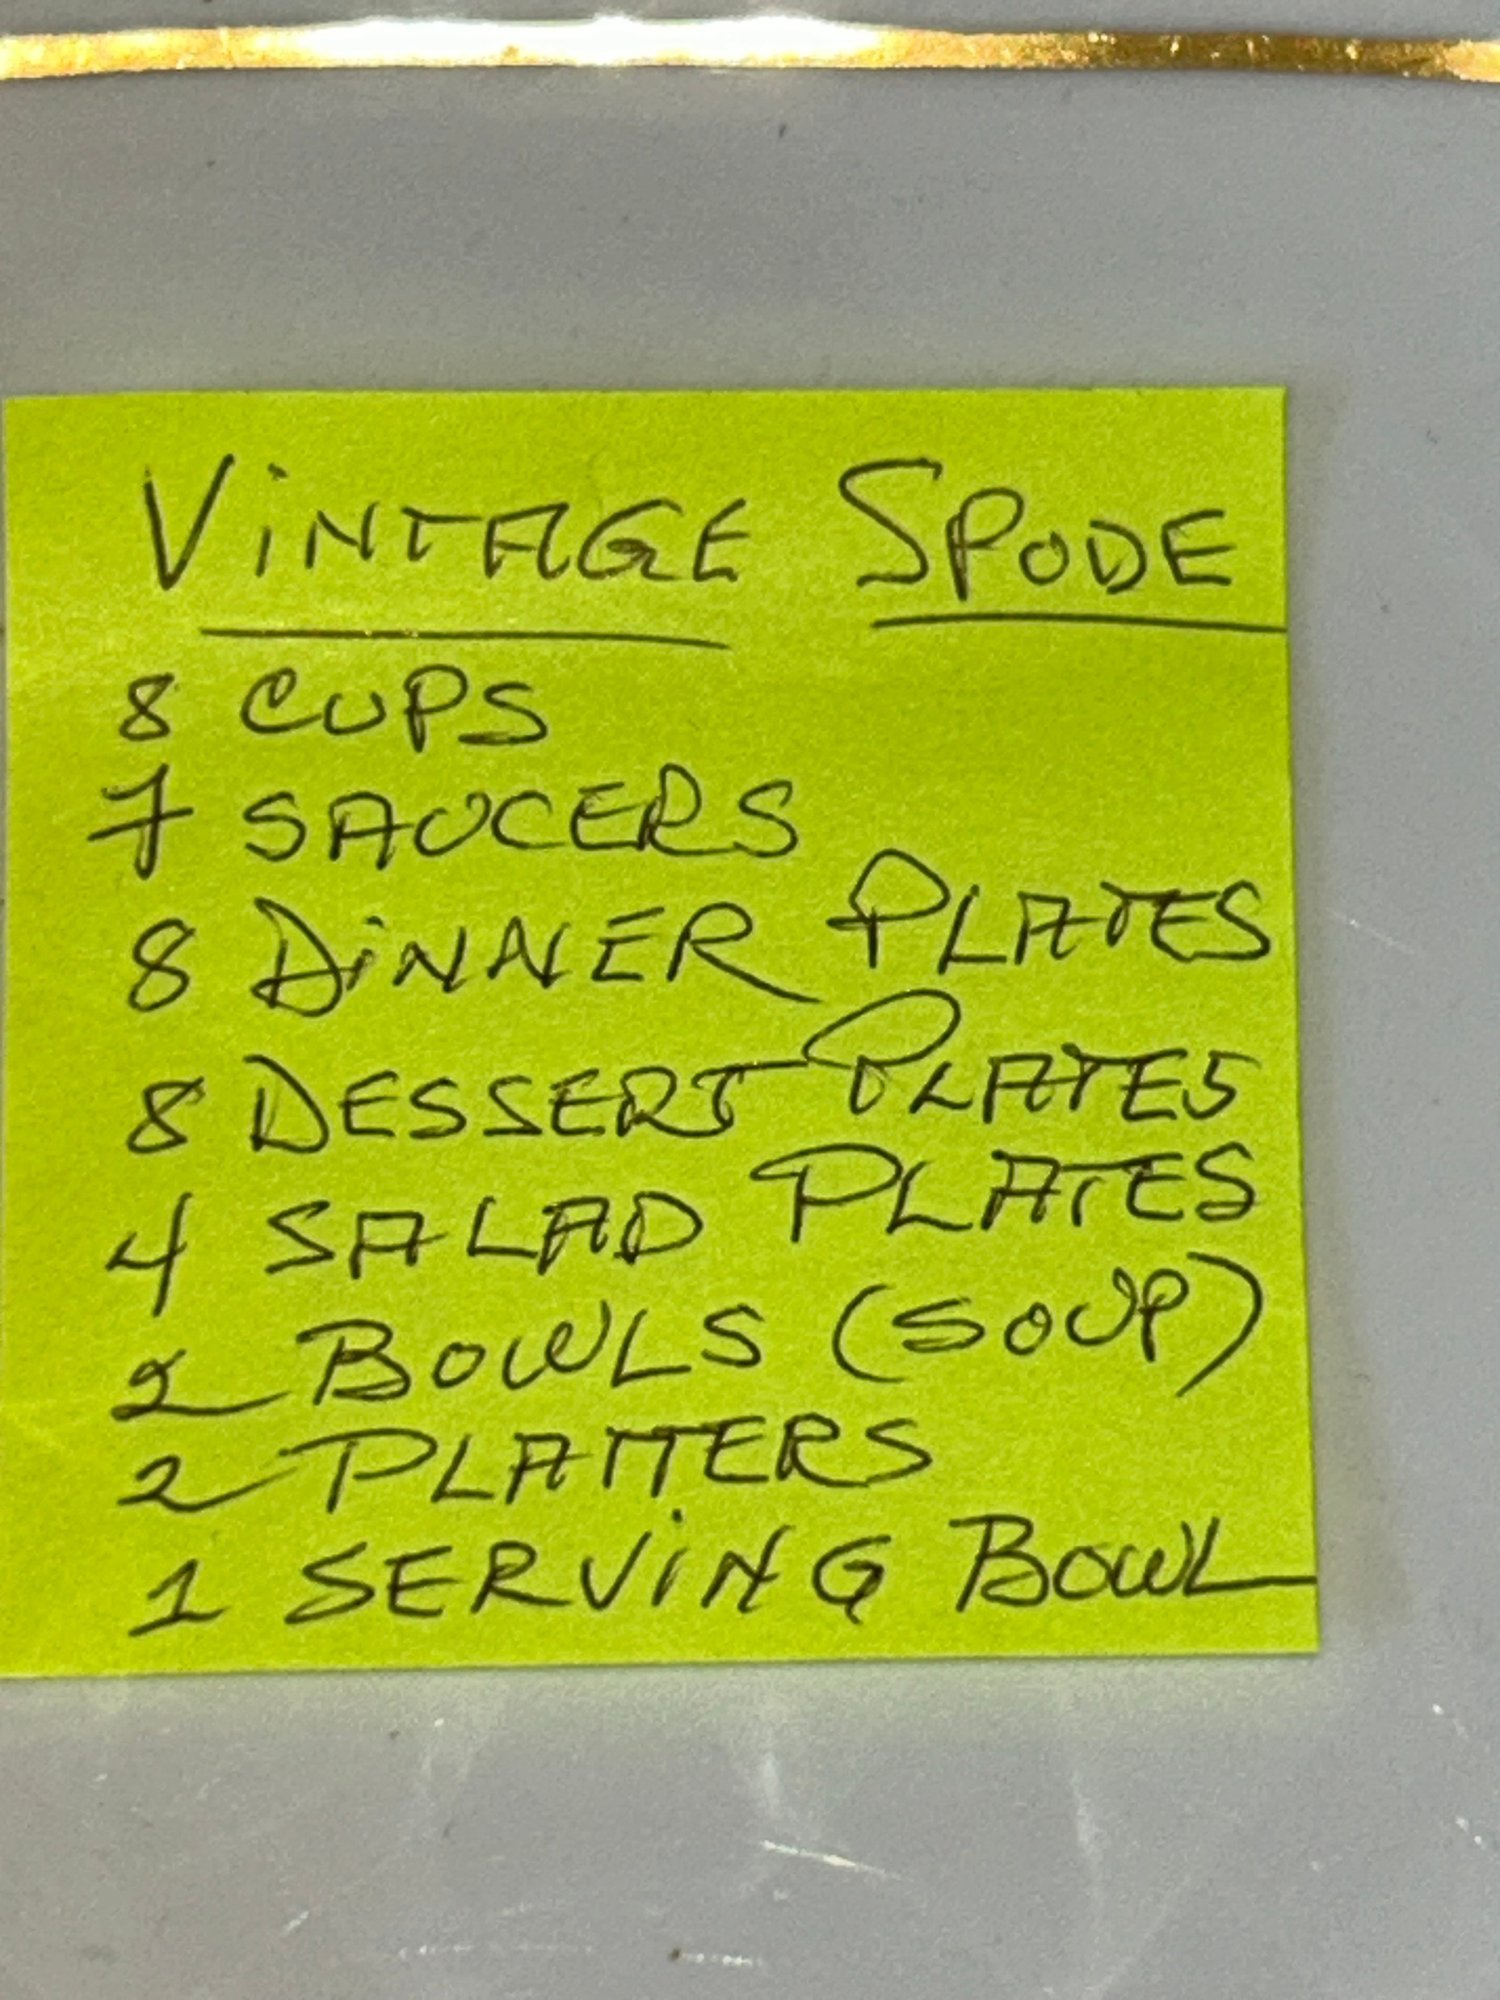 VINTAGE SPODE
8 CUPS
7 SAUCERS
8 DINNER PLATES
8 DESSERT PLATES
4 SALAD PLATES
2 BOWLS (SOUP)
2 PLATTERS
1 SERVING BOWL